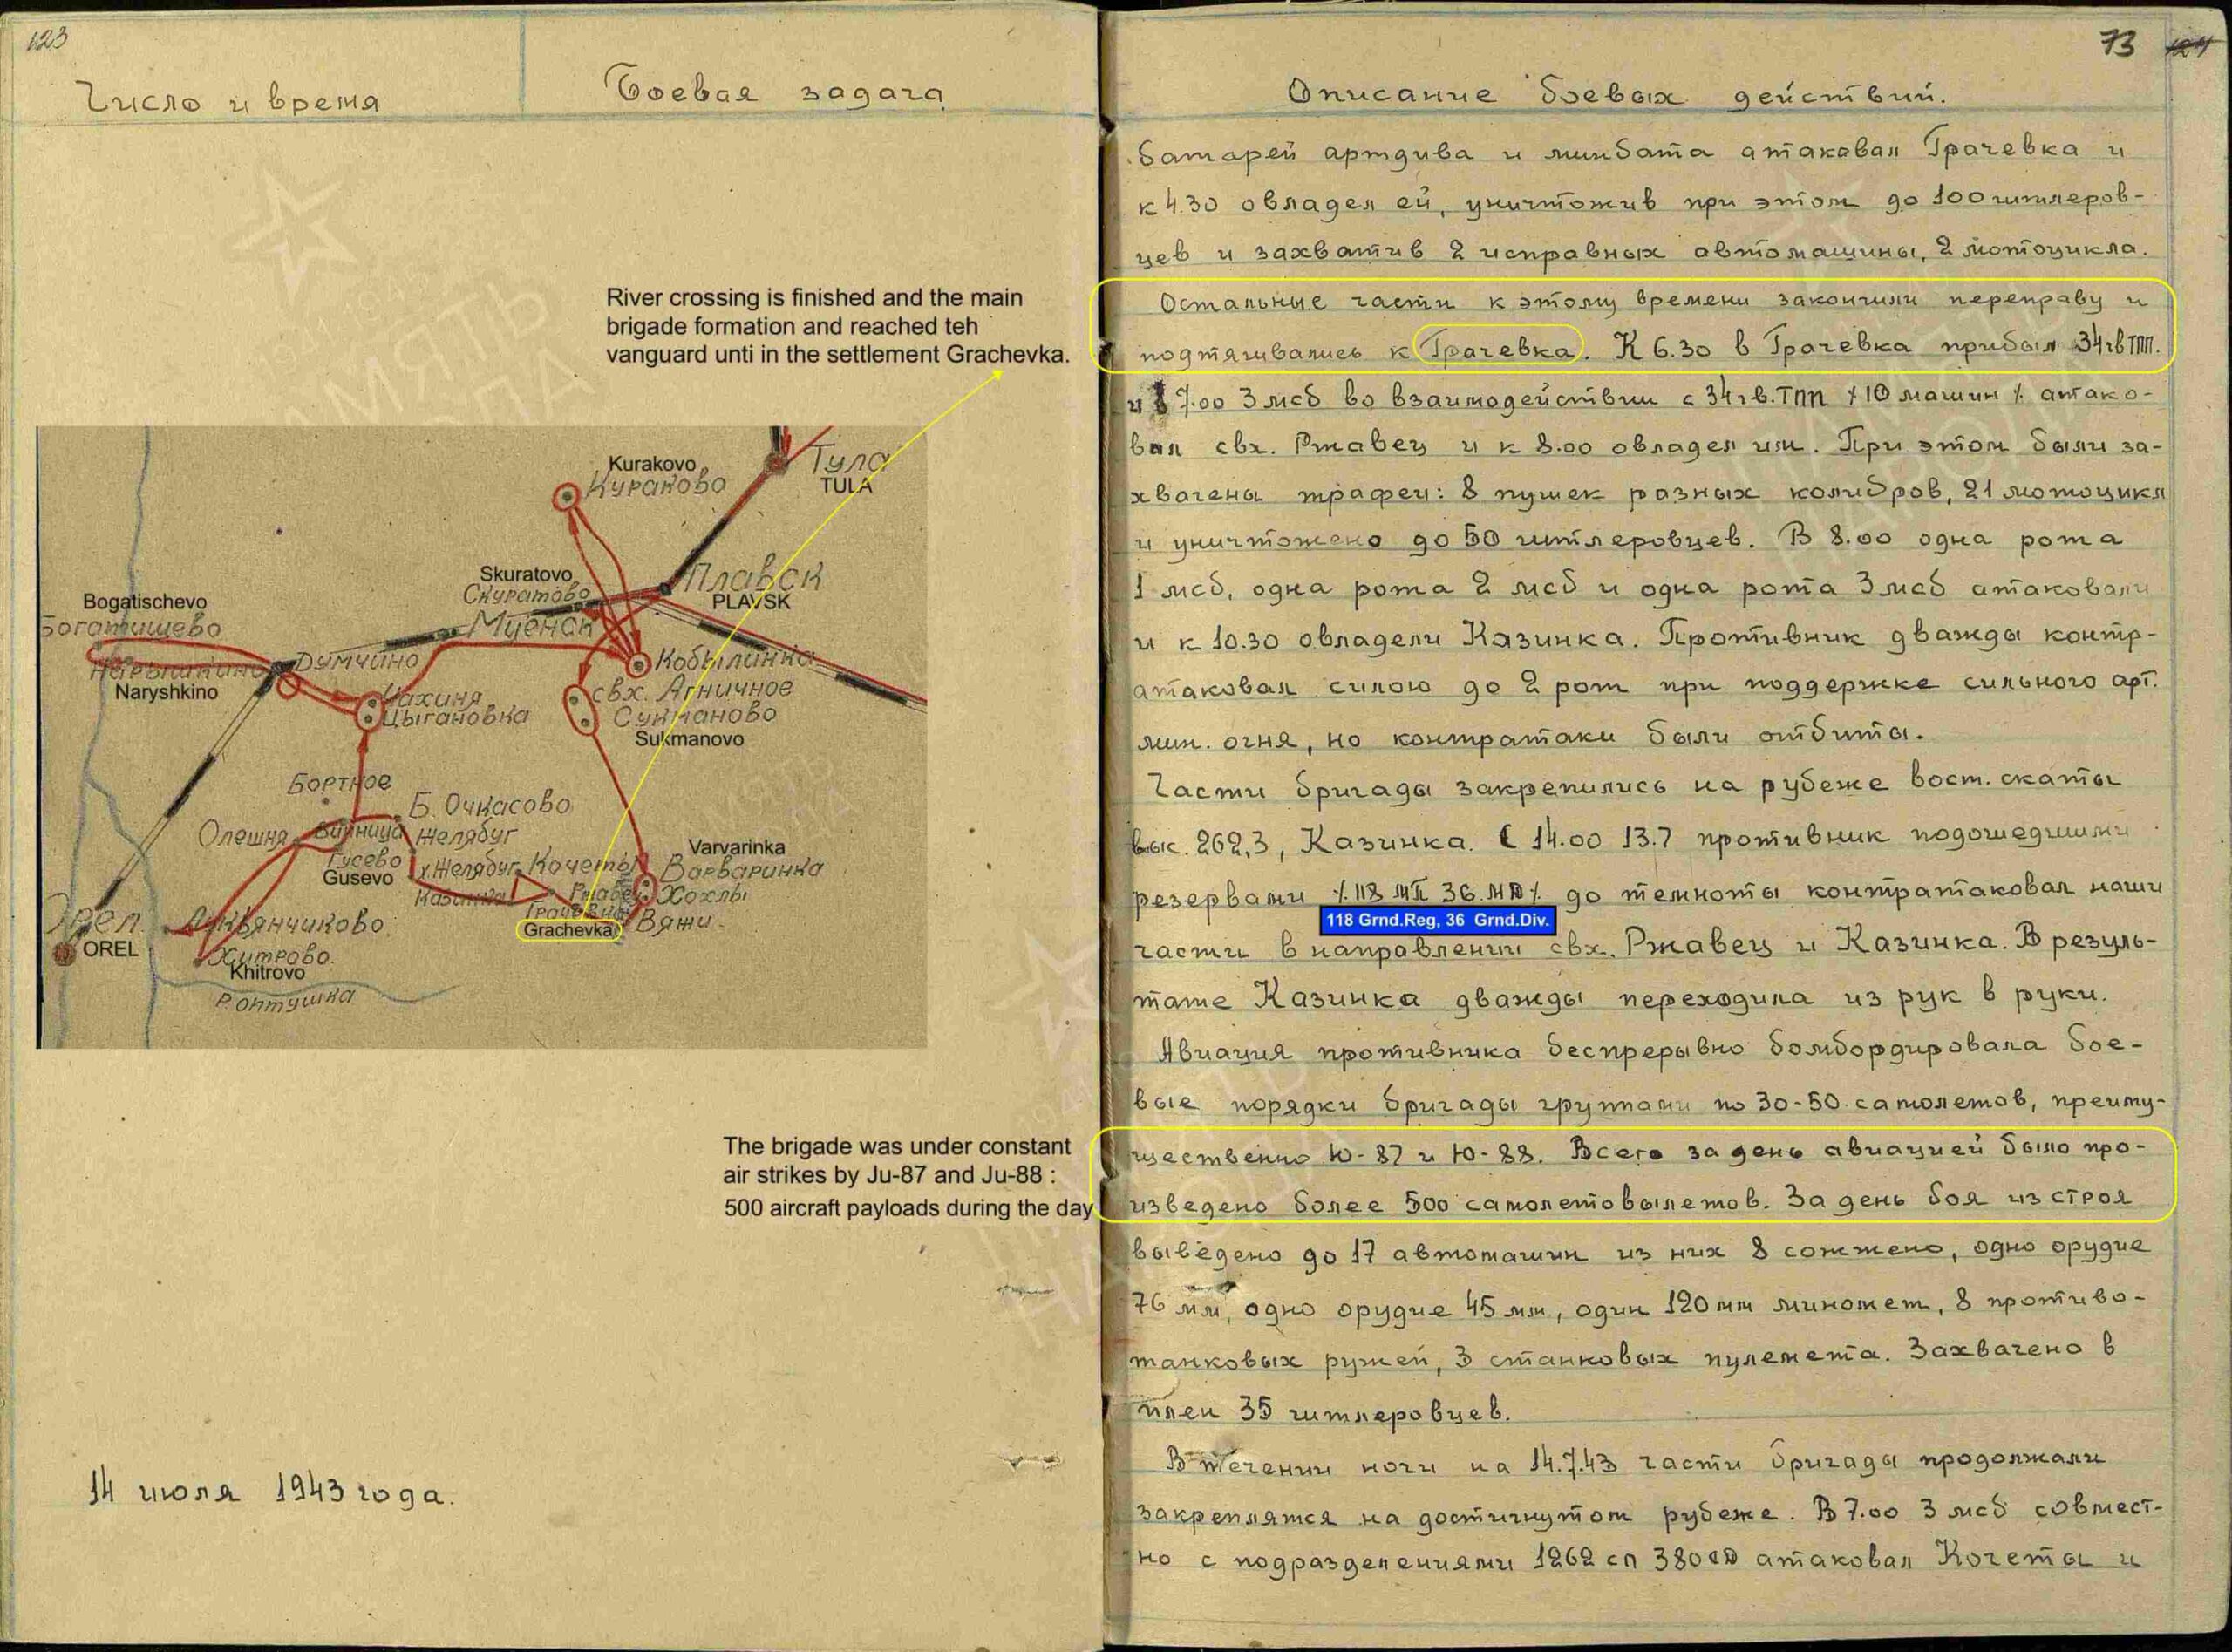 123
Число и время
Боевая задача
River crossing is finished and the main
brigade formation and reached teh
vanguard unti in the settlement Grachevka.
Kurakovo
Кураково
Тула
TULA
Skuratovo
Скуратово
Плавск
PLAVSK
Bogatischevo
Богатищево
Мценск
Нарышкино
Naryshkino
Думчино
Кобылинка
свх. Агничное
Цыгановка
Сукманово
Sukmanovo
Бортное
Б. Очкасово
Олешня
Желябуг
Гусево
Gusevo
х. Желябуг
Кочеты
Varvarinka
Варваринка
Казинка
Ржавец
Хохлы
Грачевка
Grachevka
Вяжи
Орел
OREL
Лукьянчиково
Хитрово
Khitrovo
Р. Оптушка
The brigade was under constant
air strikes by Ju-87 and Ju-88 :
500 aircraft payloads during the day
14 июля 1943 года.
73 124
Описание боевых действий.
батарей артдива и минбата атаковал Грачевка и
к 4.30 овладел ей, уничтожив при этом до 100 гитлеров-
цев и захватив 2 исправных автомашины, 2 мотоцикла.
Остальные части к этому времени закончили переправу и
подтягивались к Грачевка. К 6.30 в Грачевка прибыл 34 гв ТПП.
и в 7.00 3 мсб во взаимодействии с 34 гв. ТПП /10 машин/ атако-
вал свх. Ржавец и к 8.00 овладел им. При этом были за-
хвачены трафеи: 8 пушек разных колибров, 21 мотоцикл
и уничтожено до 50 гитлеровцев. В 8.00 одна рота
1 мсб, одна рота 2 мсб и одна рота 3 мсб атаковали
и к 10.30 овладели Казинка. Противник дважды контр-
атаковал силою до 2 рот при поддержке сильного арт.
мин. огня, но контратаки были отбиты.
Части бригады закрепились на рубеже вост. скаты
выс. 262,3, Казинка. С 14.00 13.7 противник подошедшими
резервами /118 МП 36. МД/ до темноты контратаковал наши
118 Grnd.Reg, 36 Grnd.Div.
части в направлении свх. Ржавец и Казинка. В резуль-
тате Казинка дважды переходила из рук в руки.
Авиация противника беспрерывно бомбордировала бое-
вые порядки бригады группами по 30-50 самолетов, преиму-
щественно Ю-87 и Ю-88. Всего за день авиацией было про-
изведено более 500 самолетовылетов. За день боя из строя
выведено до 17 автомашин из них 8 сожжено, одно орудие
76 мм, одно орудие 45 мм, один 120 мм миномет, 8 противо-
танковых ружей, 3 станковых пулемета. Захвачено в
плен 35 гитлеровцев.
В течении ночи на 14.7.43 части бригады продолжали
закреплятся на достигнутом рубеже. В 7.00 3 мсб совмест-
но с подразделениями 1262 сп 380 СД атаковал Кочеты и